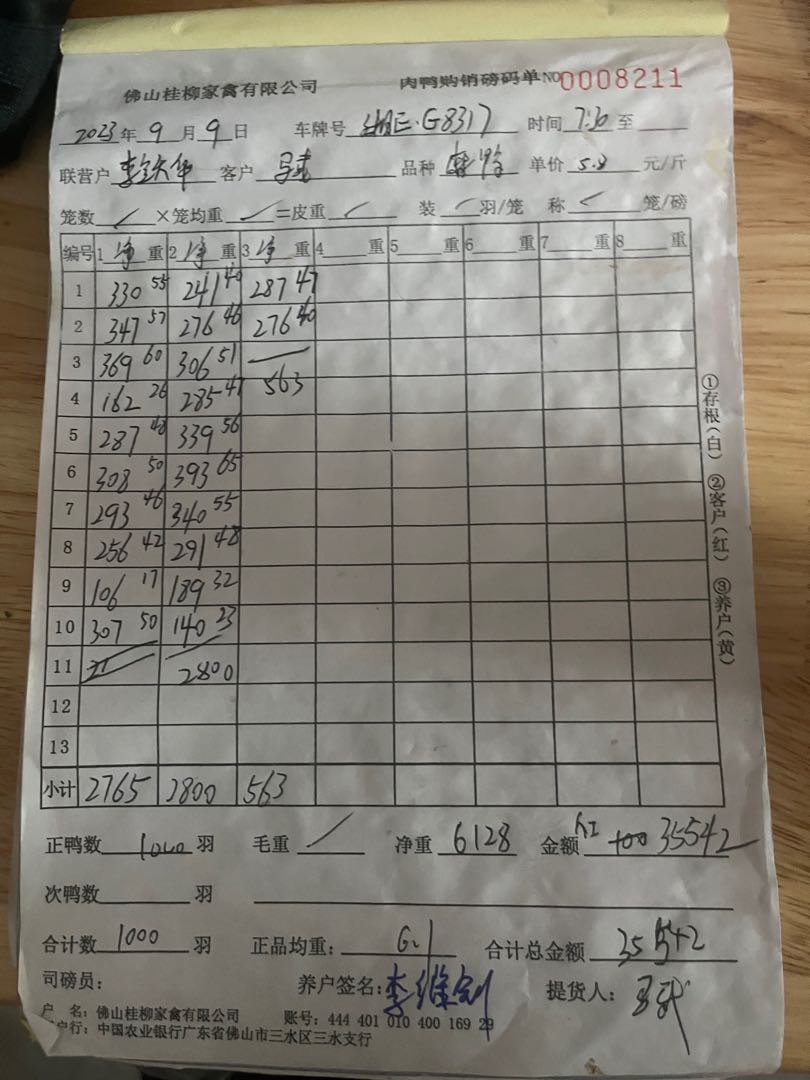 佛山桂柳家禽有限公司 肉鸭购销磅码单 NO 0008211
2023年9月9日 车牌号 G8317 时间 7:30 至
联营户 客户 品种 单价 5.8 元/斤
笼数 ×笼均重 =皮重 装 羽/笼 称 笼/磅
编号 1 净 重 2 净 重 3 净 重 4 重 5 重 6 重 7 重 8 重
1 330 55 241 40 287 47
2 347 57 276 46 276 40
3 369 60 306 51
4 162 26 285 47 563
5 287 48 339 56
6 308 50 393 65
7 293 46 340 55
8 256 42 291 48
9 106 17 189 32
10 307 50 140 23
11 2800
12
13
小计 2765 2800 563
正鸭数 1000 羽 毛重 净重 6128 金额 35542
次鸭数 羽
合计数 1000 羽 正品均重: 6.1 合计总金额 35542
司磅员: 养户签名: 提货人:
户 名: 佛山桂柳家禽有限公司 账号: 444 401 010 400 169 29
户行: 中国农业银行广东省佛山市三水区三水支行
①存根(白) ②客户(红) ③养户(黄)